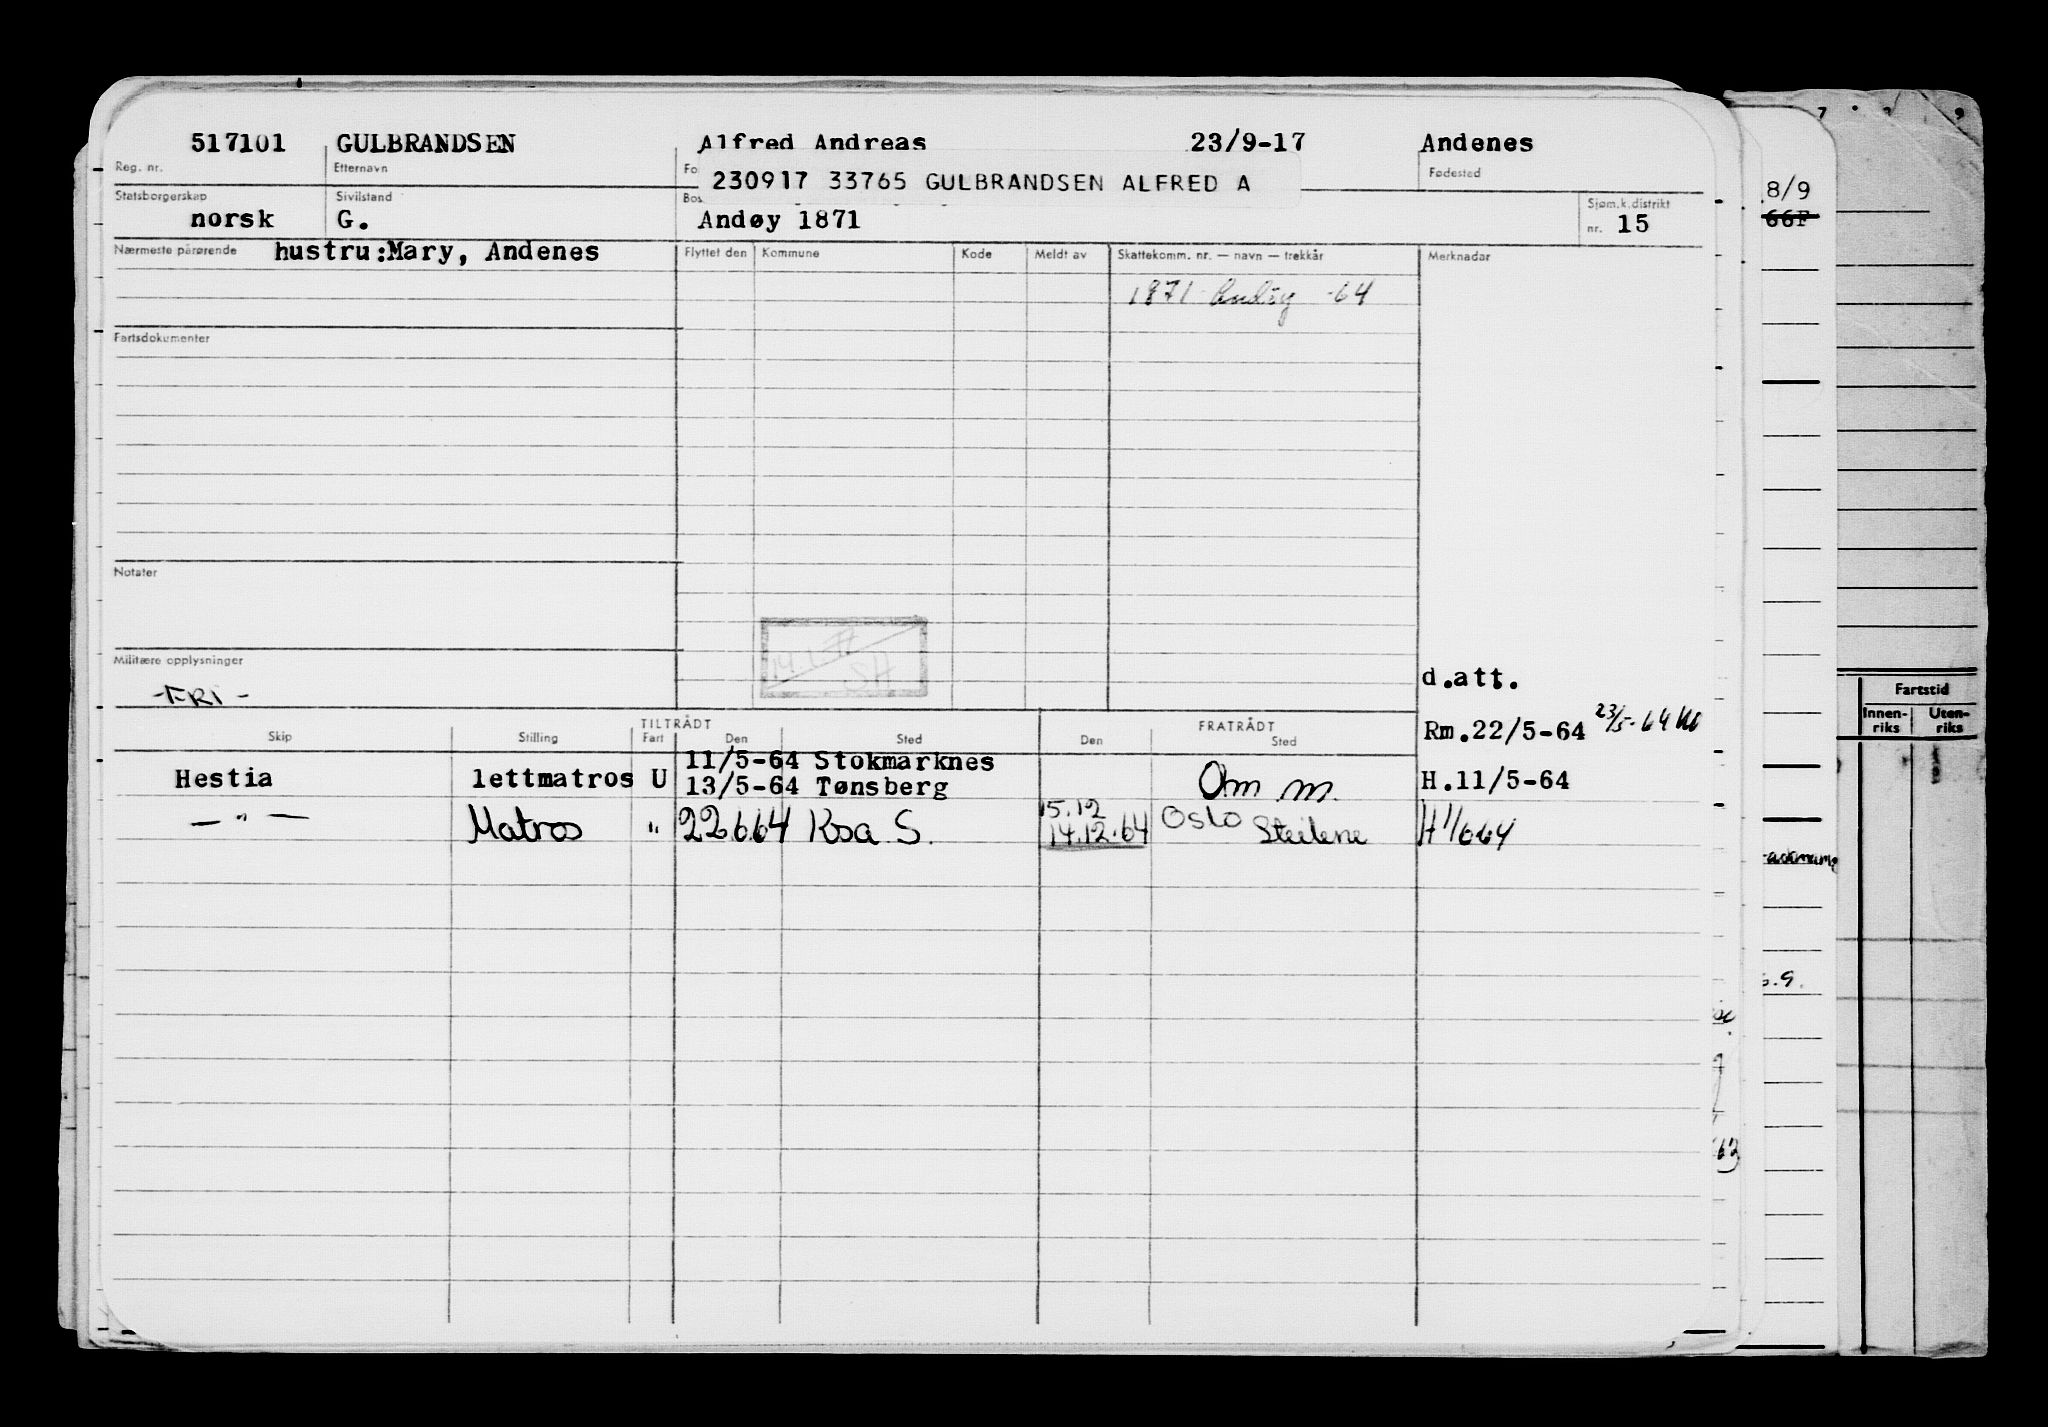 517101 GULBRANDSEN Alfred Andreas 23/9-17 Andenes
Reg. nr. Etternavn Fo Fødested
230917 33765 GULBRANDSEN ALFRED A
Statsborgerskap Sivilstand Bos Sjøm.k.distrikt
norsk G. Andøy 1871 nr. 15
Nærmeste pårørende hustru:Mary, Andenes Flyttet den Kommune Kode Meldt av Skattekomm. nr. — navn — trekkår Merknader
1871 Andøy -64
Fartsdokumenter
Notater
14.1.71
SH
Militære opplysninger
-FRI-
d.att.
TILTRÅDT FRATRÅDT
Rm.22/5-64 23/5-64
Skip Stilling Fart Den Sted Den Sted
11/5-64 Stokmarknes
Hestia lettmatros U 13/5-64 Tønsberg Om m. H.11/5-64
15.12 Oslo
— " — Matros " 22664 Ksa S. 14.12.64 Steilene H 1/664
8/9
66F
6.9.
63
7 9
Fartstid
Innen-riks Uten-riks